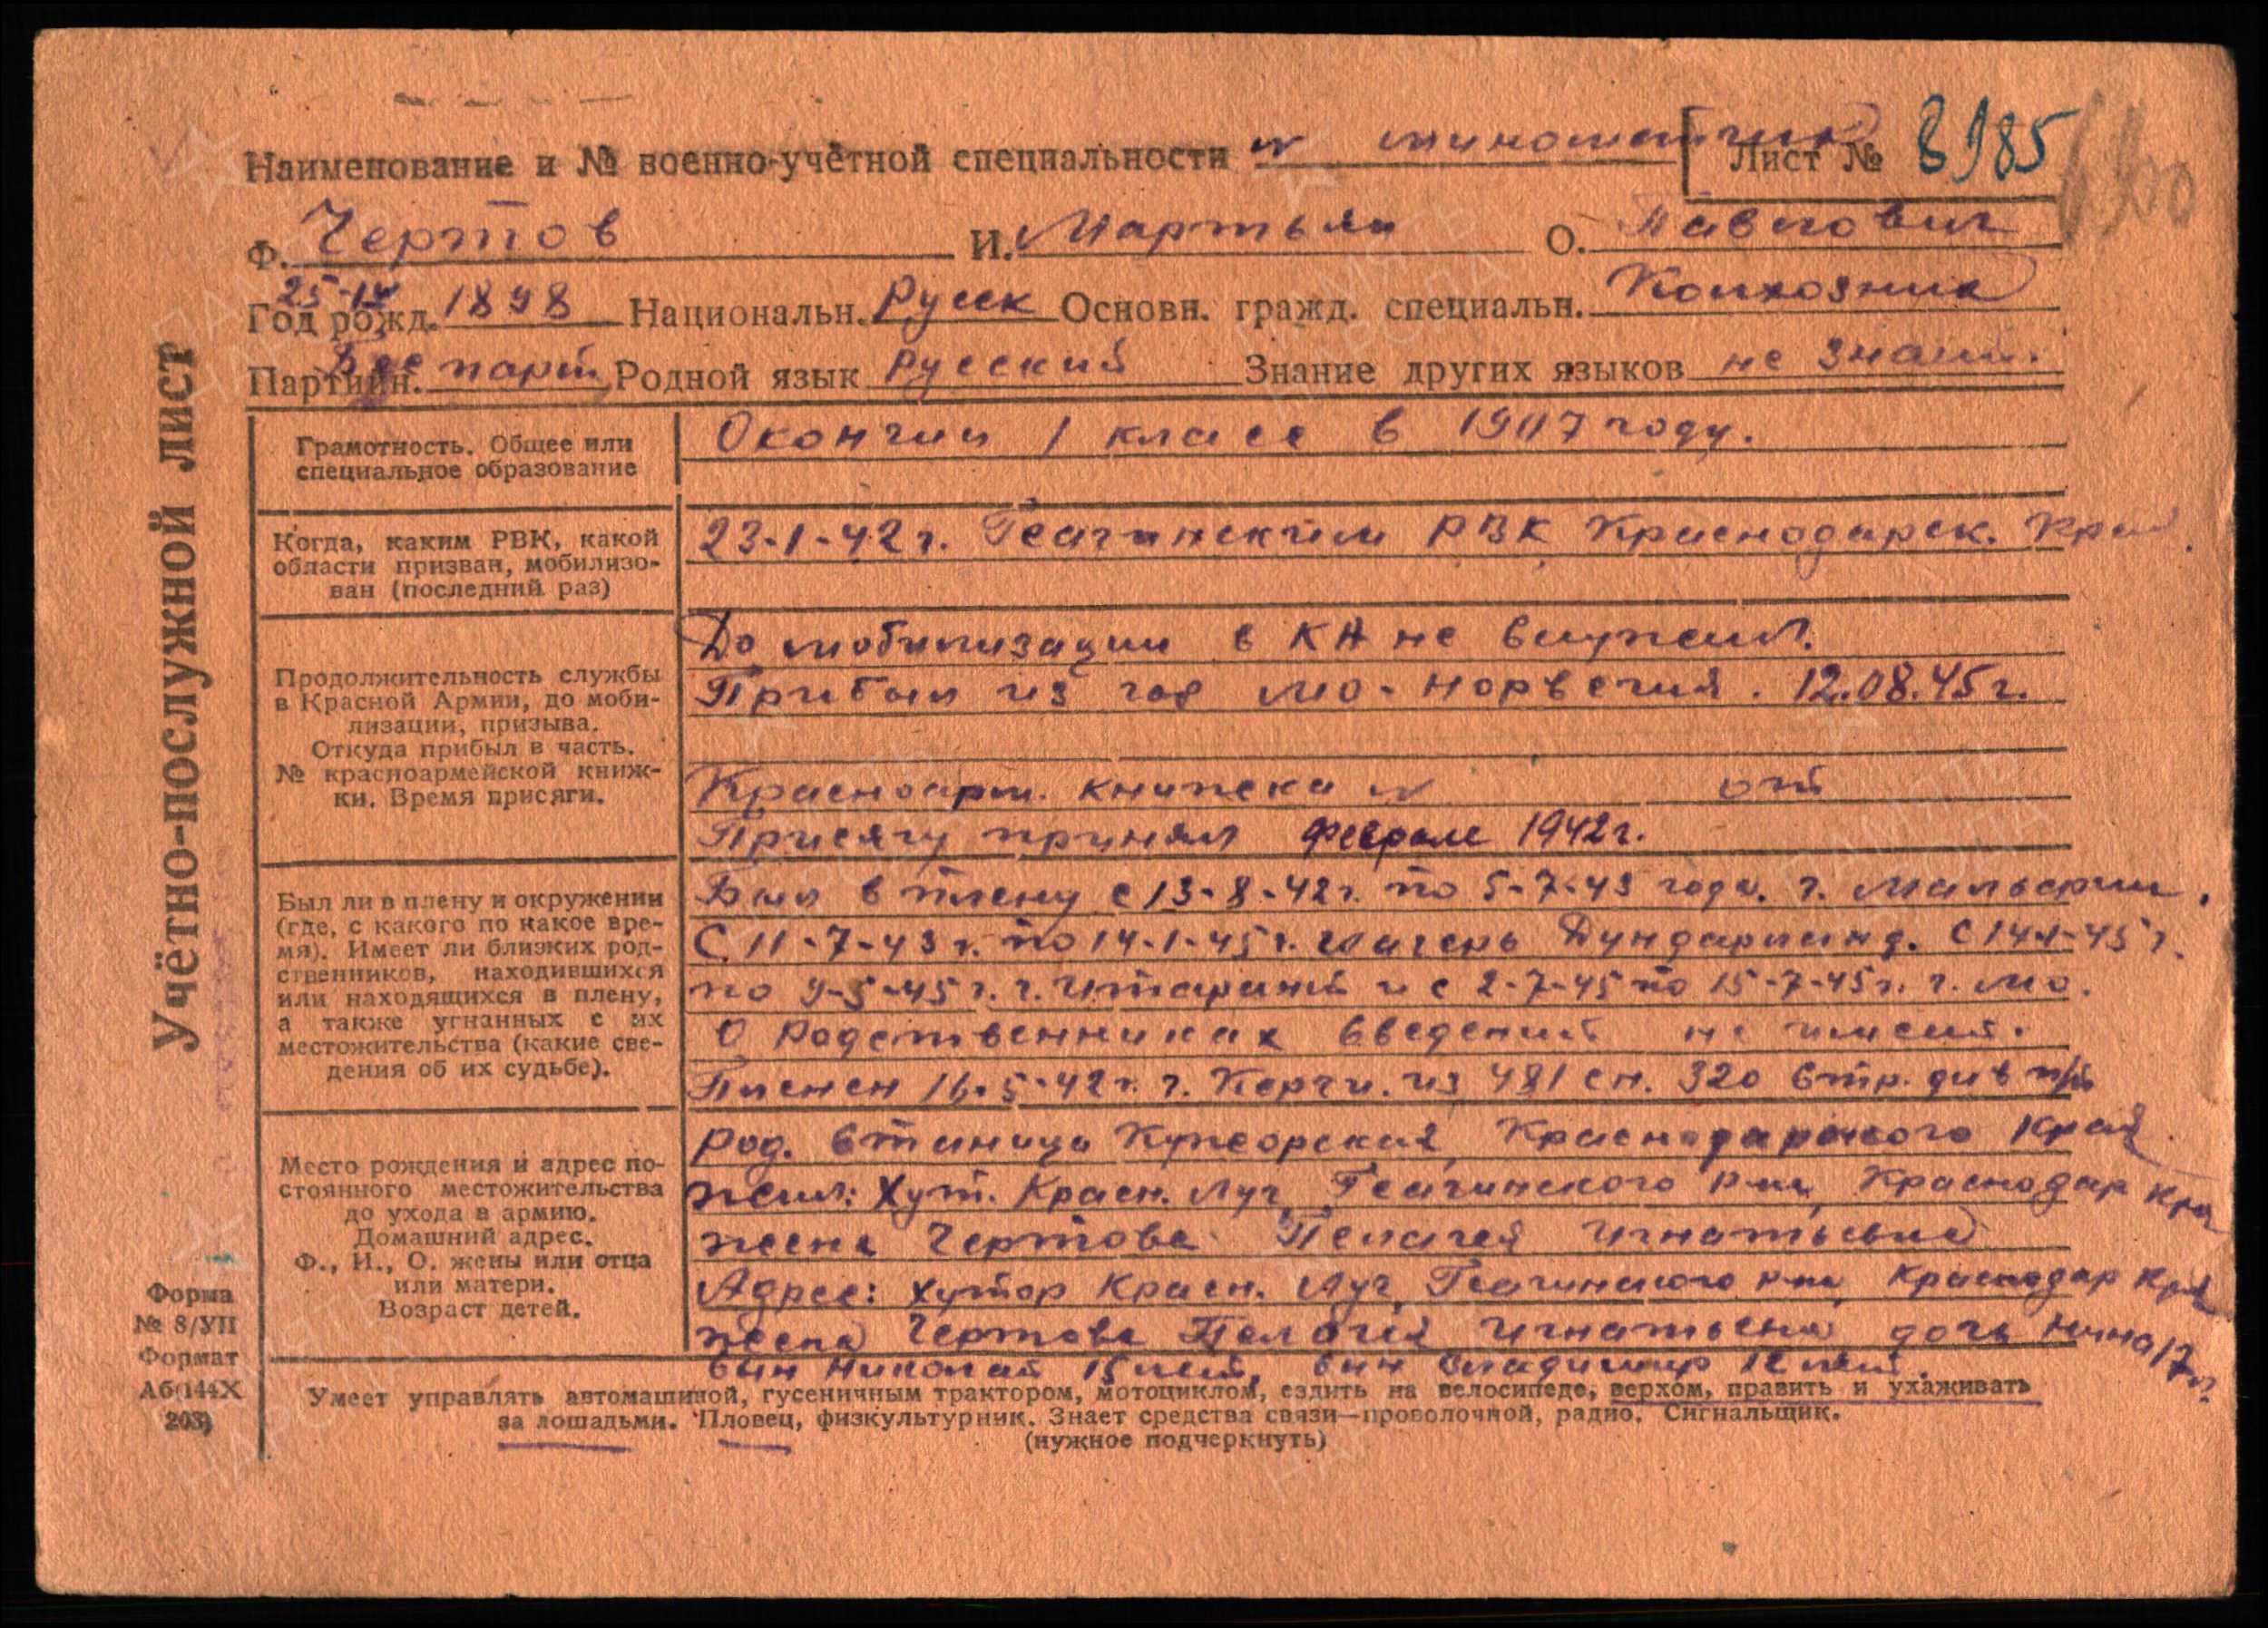 Наименование и № военно-учётной специальности № минометчик Лист № 8985
Ф. Чертов И. Мартьян О. Павлович
25-IV
Год рожд. 1898 Национальн. Русск Основн. гражд. специальн. Колхозник
Партийн. Бес парт Родной язык Русский Знание других языков не знаит.
Учётно-послужной лист
Грамотность. Общее или
специальное образование
Окончил 1 класс в 1907 году.
Когда, каким РВК, какой
области призван, мобилизо-
ван (последний раз)
23-1-42 г. Геагинским РВК Краснодарск. Края
Продолжительность службы
в Красной Армии, до моби-
лизации, призыва.
Откуда прибыл в часть.
№ красноармейской книж-
ки. Время присяги.
До мобилизации в КА не служил.
Прибыл из гор Мо-Норвегия. 12.08.45 г.
Красноарм. книжка № от
Присягу принял феврале 1942 г.
Был ли в плену и окружении
(где, с какого по какое вре-
мя). Имеет ли близких род-
ственников, находившихся
или находящихся в плену,
а также угнанных с их
местожительства (какие све-
дения об их судьбе).
Был в плену с 13-8-42 г. по 5-7-43 года. г.
С 11-7-43 г. по 14-1-45 г. лагерь Дундарланд. С 14-1-45 г.
по 9-5-45 г. г. и с 2-7-45 по 15-7-45 г. г. Мо.
О родственниках сведений не имеит.
Пленен 16-5-42 г. г. Керчи. из 481 сп. 320 стр. див
Место рождения и адрес по-
стоянного местожительства
до ухода в армию.
Домашний адрес.
Ф., И., О. жены или отца
или матери.
Возраст детей.
род. станица Кужорская, Краснодарского края
жил: Хут. Красн. Луч, Геагинского р-на, Краснодар кра
жена Чертова Пелагея Игнатьевна
Адрес: хутор Красн. Луч, Геагинского р-на, Краснодар края
жена Чертова Пелагея Игнатьевна дочь Нина 17 л.
сын Николай 15 лет, сын Владимир 12 лет.
Форма
№ 8/УП
Формат
А6(144Х
203)
Умеет управлять автомашиной, гусеничным трактором, мотоциклом, ездить на велосипеде, верхом, править и ухаживать
за лошадьми. Пловец, физкультурник. Знает средства связи—проволочной, радио. Сигнальщик.
(нужное подчеркнуть)